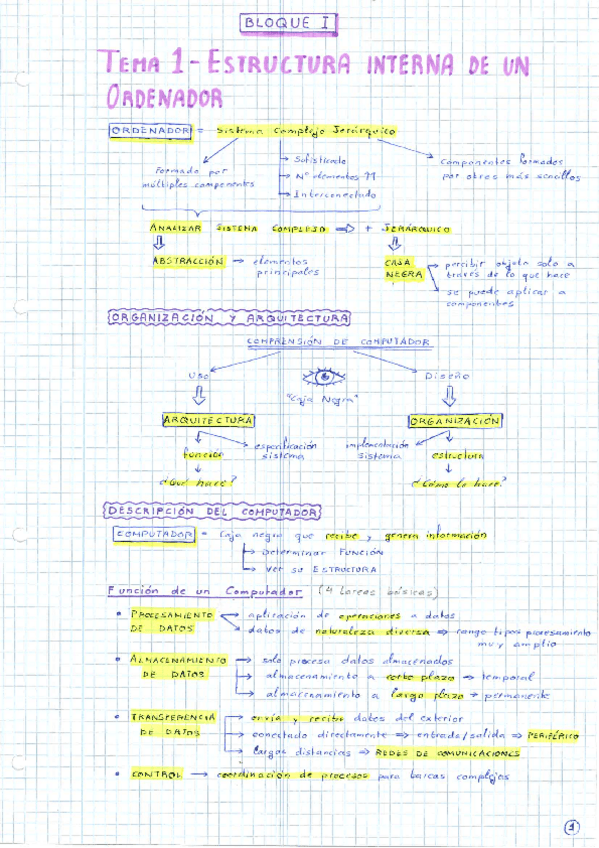 BLOQUE I
TEMA 1 - ESTRUCTURA INTERNA DE UN
ORDENADOR
ORDENADOR = Sistema Complejo Jerárquico
Formado por
múltiples componentes
→ Sofisticado
→ Nº elementos ↑↑
→ Interconectado
Componentes formados
por otros más scnollos
ANALIZAR SISTEMA COMPLEJO ⇒ + JERÁRQUICO
ABSTRACCIÓN → elementos
principales
CAJA
NEGRA
percibir objeto solo a
través de lo que hace
se puede aplicar a
componentes
ORGANIZACIÓN Y ARQUITECTURA
COMPRENSIÓN DE COMPUTADOR
Uso
"Caja Negra"
Diseño
ARQUITECTURA
ORGANIZACIÓN
función
especificación
sistema
implementación
sistema
estructura
¿Qué hace?
¿Cómo lo hace?
DESCRIPCIÓN DEL COMPUTADOR
COMPUTADOR = Caja negra que recibe y genera información
→ Determinar FUNCIÓN
→ Ver su ESTRUCTURA
Función de un Computador (4 tareas básicas)
• PROCESAMIENTO
DE DATOS
aplicación de operaciones a datos
datos de naturaleza diversa ⇒ rango tipos procesamiento
muy amplio
• ALMACENAMIENTO
DE DATOS
→ solo procesa datos almacenados
→ almacenamiento a corto plazo → temporal
→ almacenamiento a largo plazo → permanente
• TRANSFERENCIA
DE DATOS
→ envía y recibe datos del exterior
→ conectado directamente ⇒ entrada/salida ⇒ PERIFÉRICO
→ largas distancias ⇒ REDES DE COMUNICACIONES
• CONTROL → coordinación de procesos para tareas complejas
1